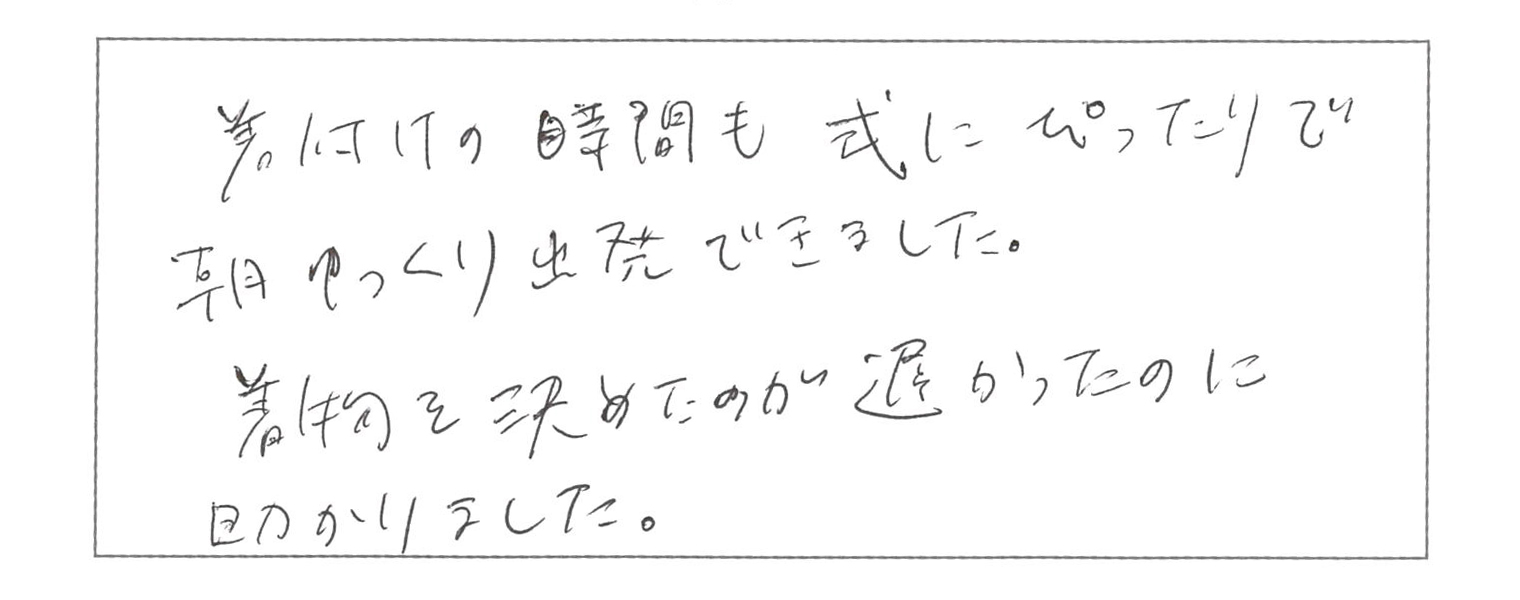 着付けの時間も 式に ぴったりで
朝ゆっくり出発できました。
着物を決めたのが遅かったのに
助かりました。